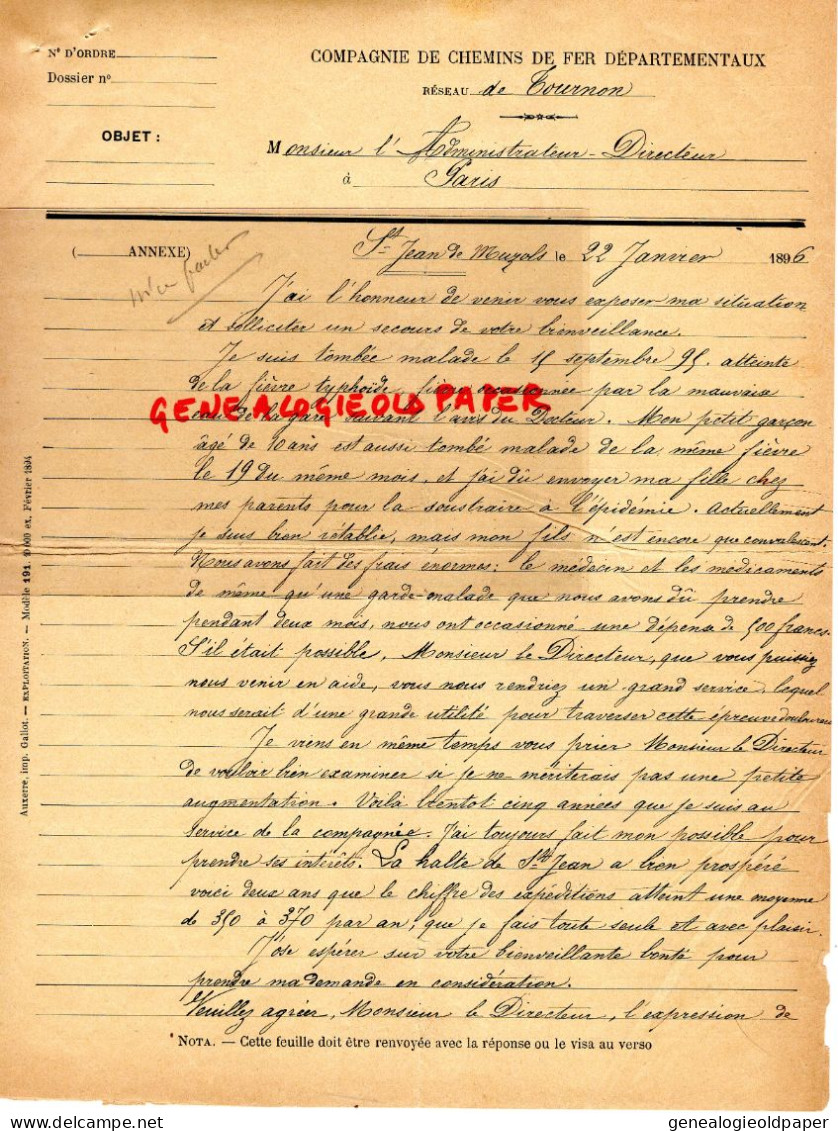 N° D'ORDRE
Dossier n°
OBJET :
COMPAGNIE DE CHEMINS DE FER DÉPARTEMENTAUX
RÉSEAU de Tournon
Monsieur l'Administrateur-Directeur
à Paris
( ANNEXE)
St Jean de Muzols le 22 Janvier 1896
J'ai l'honneur de venir vous exposer ma situation
et solliciter un secours de votre bienveillance.
Je suis tombée malade le 15 septembre 95. atteinte
de la fièvre typhoïde, fièvre occasionnée par la mauvaise
eau de la gare suivant l'avis du Docteur. Mon petit garçon
âgé de 10 ans est aussi tombé malade de la même fièvre
le 19 du même mois, et j'ai dû envoyer ma fille chez
mes parents pour la soustraire à l'épidémie. Actuellement
je suis bien rétablie, mais mon fils n'est encore que convalescent.
Nous avons fait des frais énormes : le médecin et les médicaments
de même qu'une garde-malade que nous avons dû prendre
pendant deux mois, nous ont occasionné une dépense de 500 francs.
S'il était possible, Monsieur le Directeur, que vous puissiez
nous venir en aide, vous nous rendriez un grand service, lequel
nous serait d'une grande utilité pour traverser cette épreuve douloureuse
Je viens en même temps vous prier Monsieur le Directeur
de vouloir bien examiner si je ne mériterais pas une petite
augmentation. Voilà bientot cinq années que je suis au
service de la compagnie. J'ai toujours fait mon possible pour
prendre ses intérêts. La halte de St Jean a bien prospéré
voici deux ans que le chiffre des expéditions atteint une moyenne
de 350 à 370 par an, que je fais toute seule et avec plaisir.
J'ose espérer sur votre bienveillante bonté pour
prendre ma demande en considération.
Veuillez agréer, Monsieur le Directeur, l'expression de
NOTA. — Cette feuille doit être renvoyée avec la réponse ou le visa au verso
Auxerre, imp. Gallot. — EXPLOITATION. — Modèle 191. 10 000 ex. Février 1894
GENEALOGIEOLDPAPER
genealogieoldpaper